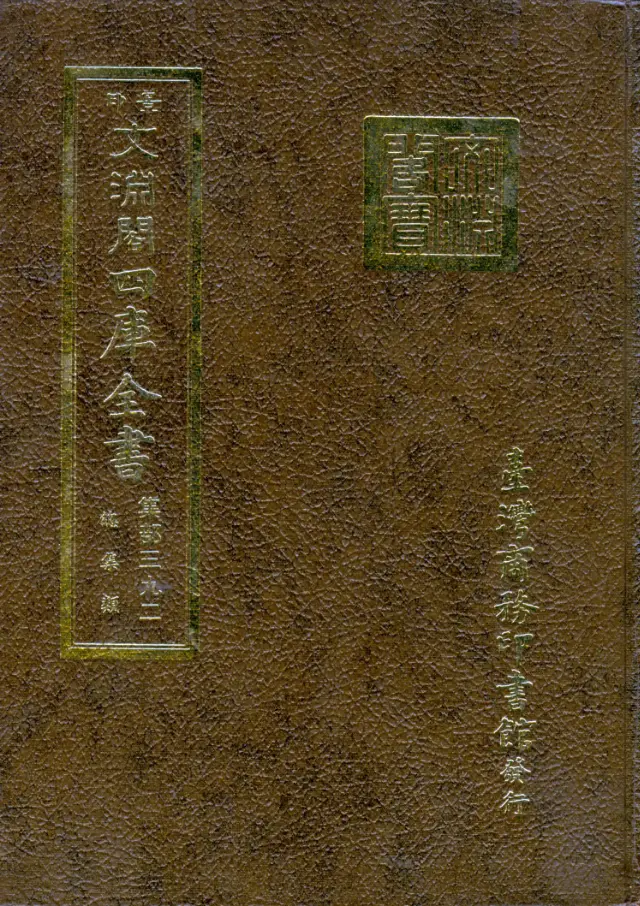 景印
文淵閣四庫全書
集部三九二
總集類
文淵
閣寶
臺灣商務印書館發行